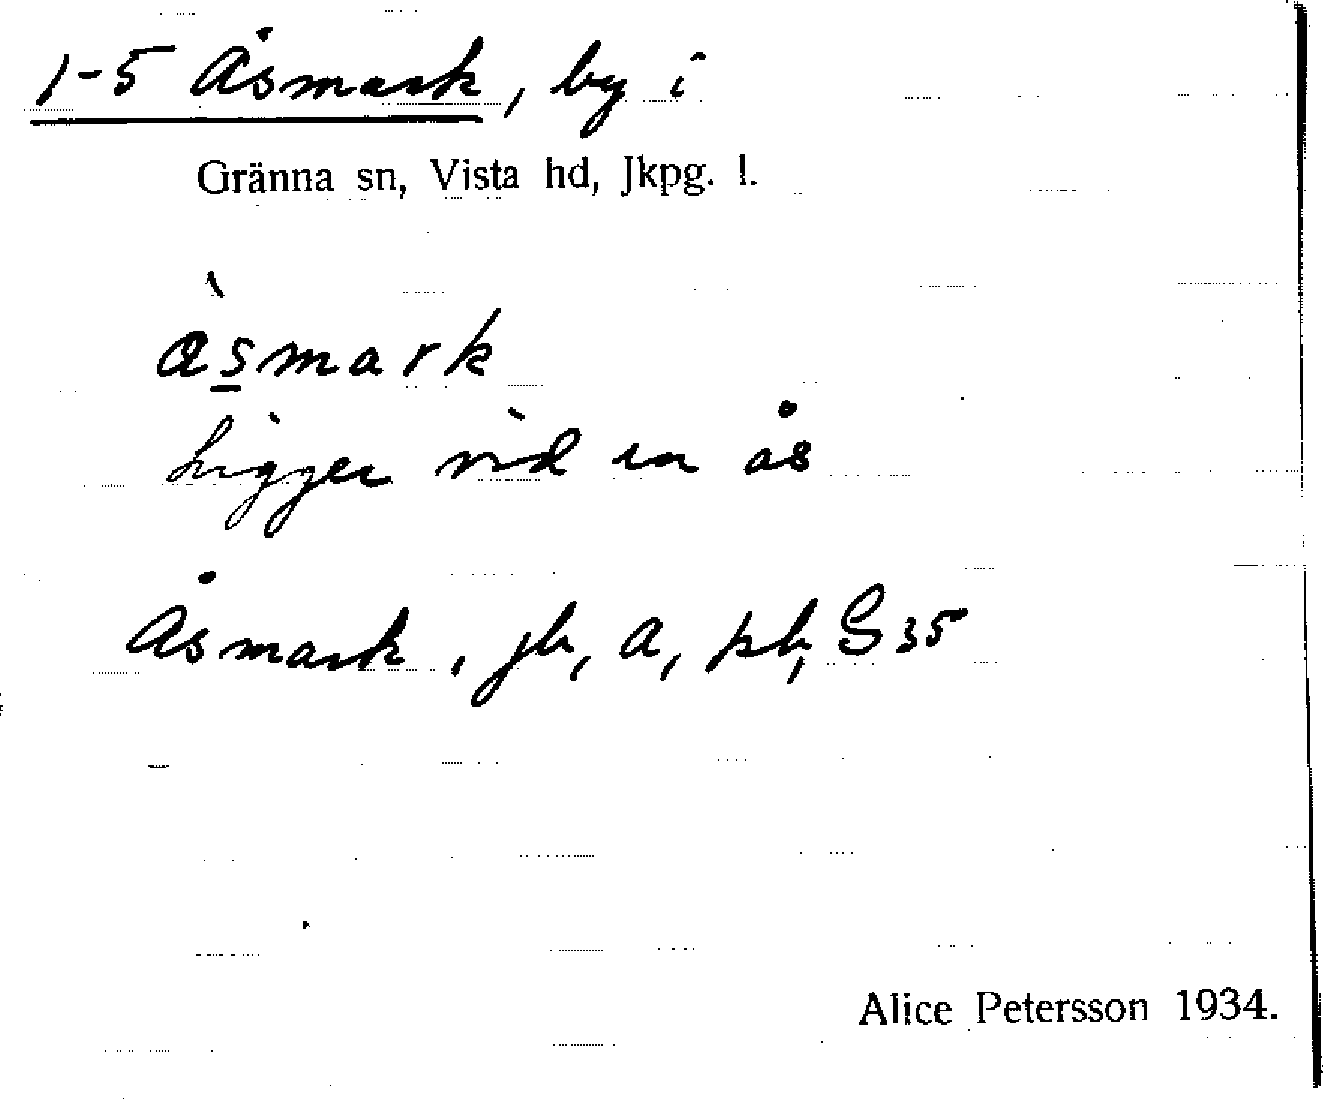 1-5 Åsmark, by i
Gränna sn, Vista hd, Jkpg. l.
åsmark
Ligger vid en ås
Åsmark, jb, A, pb, G 35
Alice Petersson 1934.